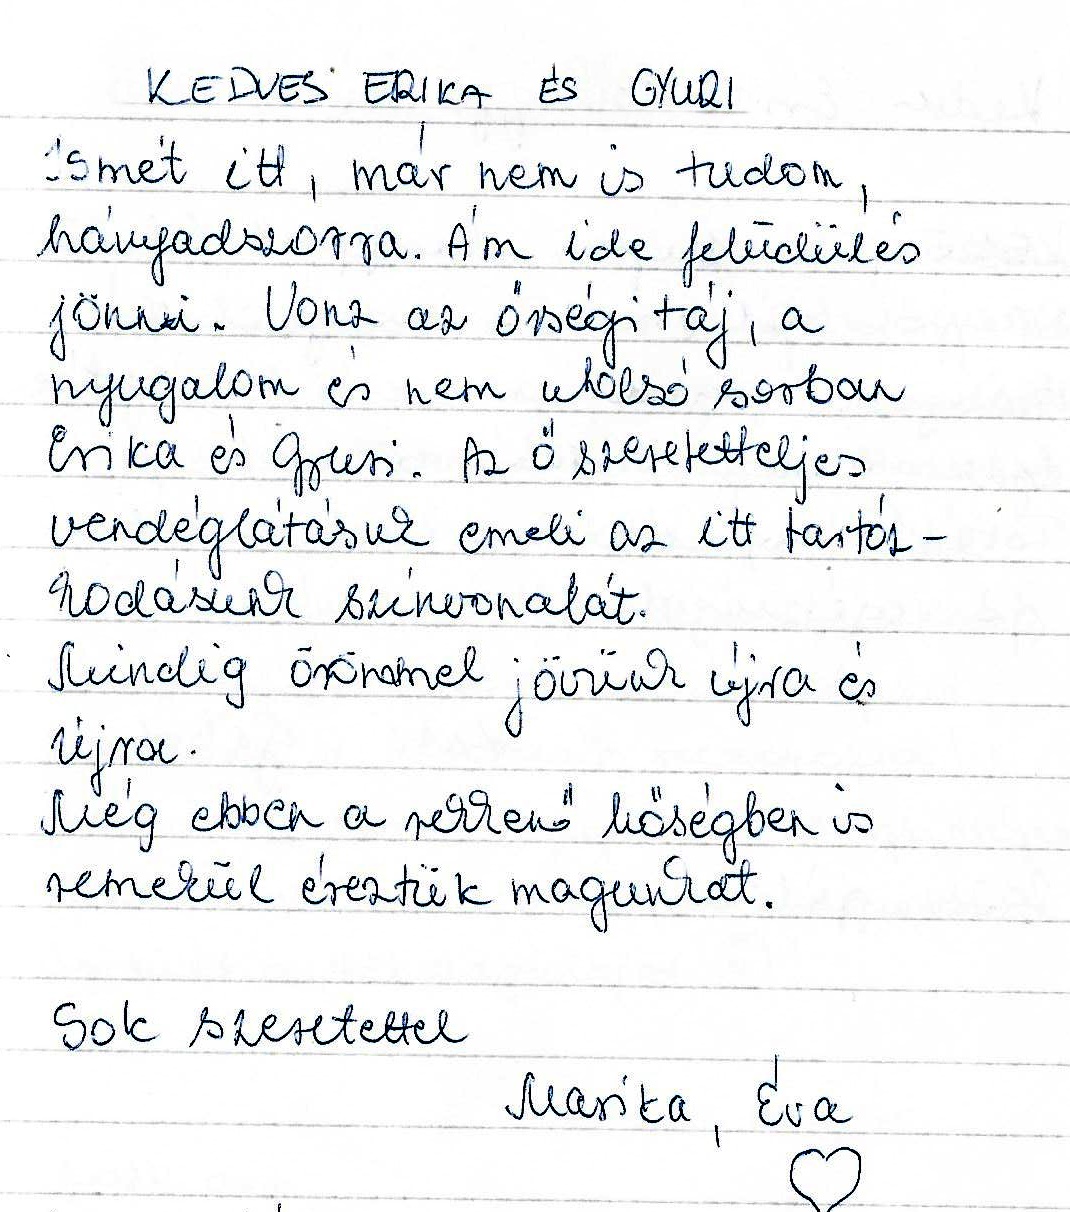 KEDVES ERIKA ÉS GYURI
Ismét itt, már nem is tudom,
hányadszorra. Ám ide felüdülés
jönni. Vonz az őrségi táj, a
nyugalom és nem utolsó sorban
Erika és Gyuri. Az ő szeretetteljes
vendéglátásuk emeli az itt tartóz-
kodásunk színvonalát.
Mindig örömmel jövünk újra és
újra.
Még ebben a rekkenő hőségben is
remekül éreztük magunkat.
Sok szeretettel
Marika, Éva